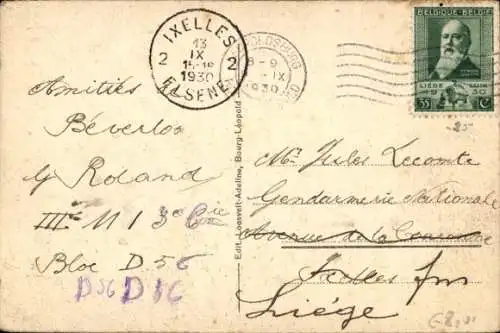 IXELLES
13
IX
2 2
15-18
1930
ELSENE
OLDSBURG
8-9
IX
1930
BELGIQUE-BELGIË
LIÈGE
1930
35 C
25
Amitiés
Béverloo
Roland
III M 1 3e Cie
Bloc D56
D56 D16
Edit. Loosvelt-Adeline, Bourg-Léopold
Mr Jules Lecomte
Gendarmerie Nationale
Avenue de la Couronne
Ixelles
Liège